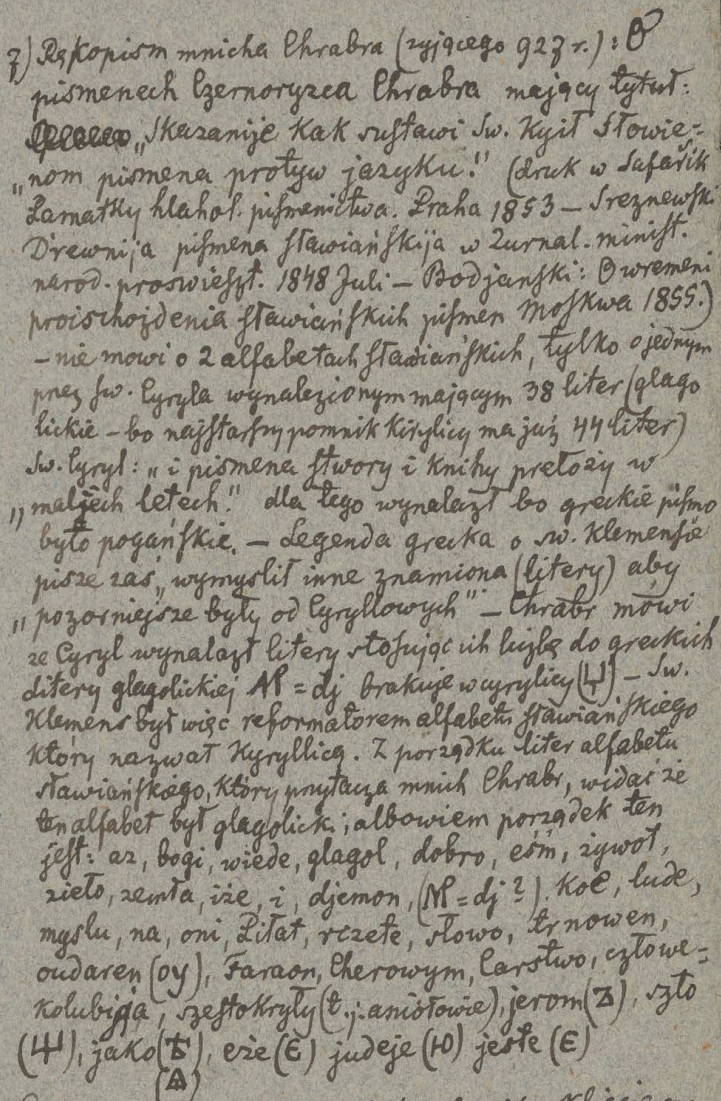 7) Rękopism mnicha Chrabra (żyjącego 927 r.): O
pismenech Czernoryzca Chrabra mający tytuł:
„Skazanije kak sustawi Sw. Kyił Słowie=
„nom pismena protyw jazyku." (druk w Safařik
Pamatky hlahol. pismenictwa. Praha 1853 – Sreznewski
Drewnija pismena sławiańskija w Żurnal. minist.
narod. proswieszt. 1848 Juli – Bodjanski: O wremeni
proischożdenia sławiańskich pismen Moskwa 1855.)
– nie mowi o 2 alfabetach sławiańskich, tylko o jednym
przez sw. Cyryla wynalezionym mającym 38 liter (glago
lickie – bo najstarszy pomnik Kirylicy ma już 44 liter)
Sw. Cyryl: „i pismena stwory i knihy prełoży w
„maljech letech." dla tego wynalazł bo greckie pismo
było pogańskie. – Legenda grecka o sw. Klemensie
pisze zaś „wymyslił inne znamiona (litery) aby
„pozorniejsze były od Cyryllowych" – Chrabr mówi
że Cyryl wynalazł litery stosując ich liczbę do greckich
litery glagolickiej Ⰼ = dj brakuje w cyrylicy (Ћ) – Sw.
Klemens był więc reformatorem alfabetu sławiańskiego
który nazwał Kyryllicą. Z porządku liter alfabetu
sławiańskiego, który przytacza mnich Chrabr, widać że
ten alfabet był glagolicki; albowiem porządek ten
jest: az, bogi, wiede, glagol, dobro, eśm, żywot,
zieło, zemła, iże, i, djemon, (Ⰼ = dj?). Koe, lude,
myslu, na, oni, Piłat, rczete, słowo, trnowen,
oudaren (oy), Faraon, Cherowym, Carstwo, człowe=
kolubija, szestokryły (t.j. aniołowie), jerom (Ъ), szto
(Щ), jako (Ѣ), eże (Є) judeje (Ю) jeste (Є)
(Ѧ)